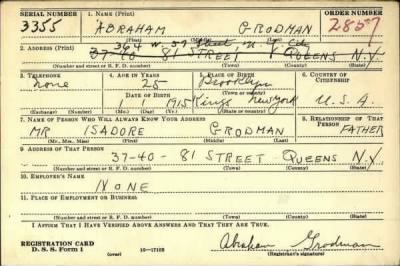 SERIAL NUMBER 1. NAME (Print) ORDER NUMBER
3355 ABRAHAM GRODMAN 2857
(First) (Middle) (Last)
364 W 57 Street N. Y. City
2. ADDRESS (Print)
37-40 - 81 STREET QUEENS N.Y
(Number and street or R. F. D. number) (Town) (County) (State)
3. TELEPHONE 4. AGE IN YEARS 5. PLACE OF BIRTH 6. COUNTRY OF CITIZENSHIP
none 25 Brooklyn
DATE OF BIRTH (Town or county)
1 1915 Kings New York U.S.A.
(Exchange) (Number) (Mo.) (Day) (Yr.) (State or country)
7. NAME OF PERSON WHO WILL ALWAYS KNOW YOUR ADDRESS 8. RELATIONSHIP OF THAT PERSON
MR ISADORE GRODMAN FATHER
(Mr., Mrs., Miss) (First) (Middle) (Last)
9. ADDRESS OF THAT PERSON
37-40 - 81 STREET QUEENS N.Y
(Number and street or R. F. D. number) (Town) (County) (State)
10. EMPLOYER'S NAME
NONE
11. PLACE OF EMPLOYMENT OR BUSINESS
(Number and street or R. F. D. number) (Town) (County) (State)
I AFFIRM THAT I HAVE VERIFIED ABOVE ANSWERS AND THAT THEY ARE TRUE.
REGISTRATION CARD Abraham Grodman
D. S. S. Form 1 (over) 16-17105 (Registrant's signature)